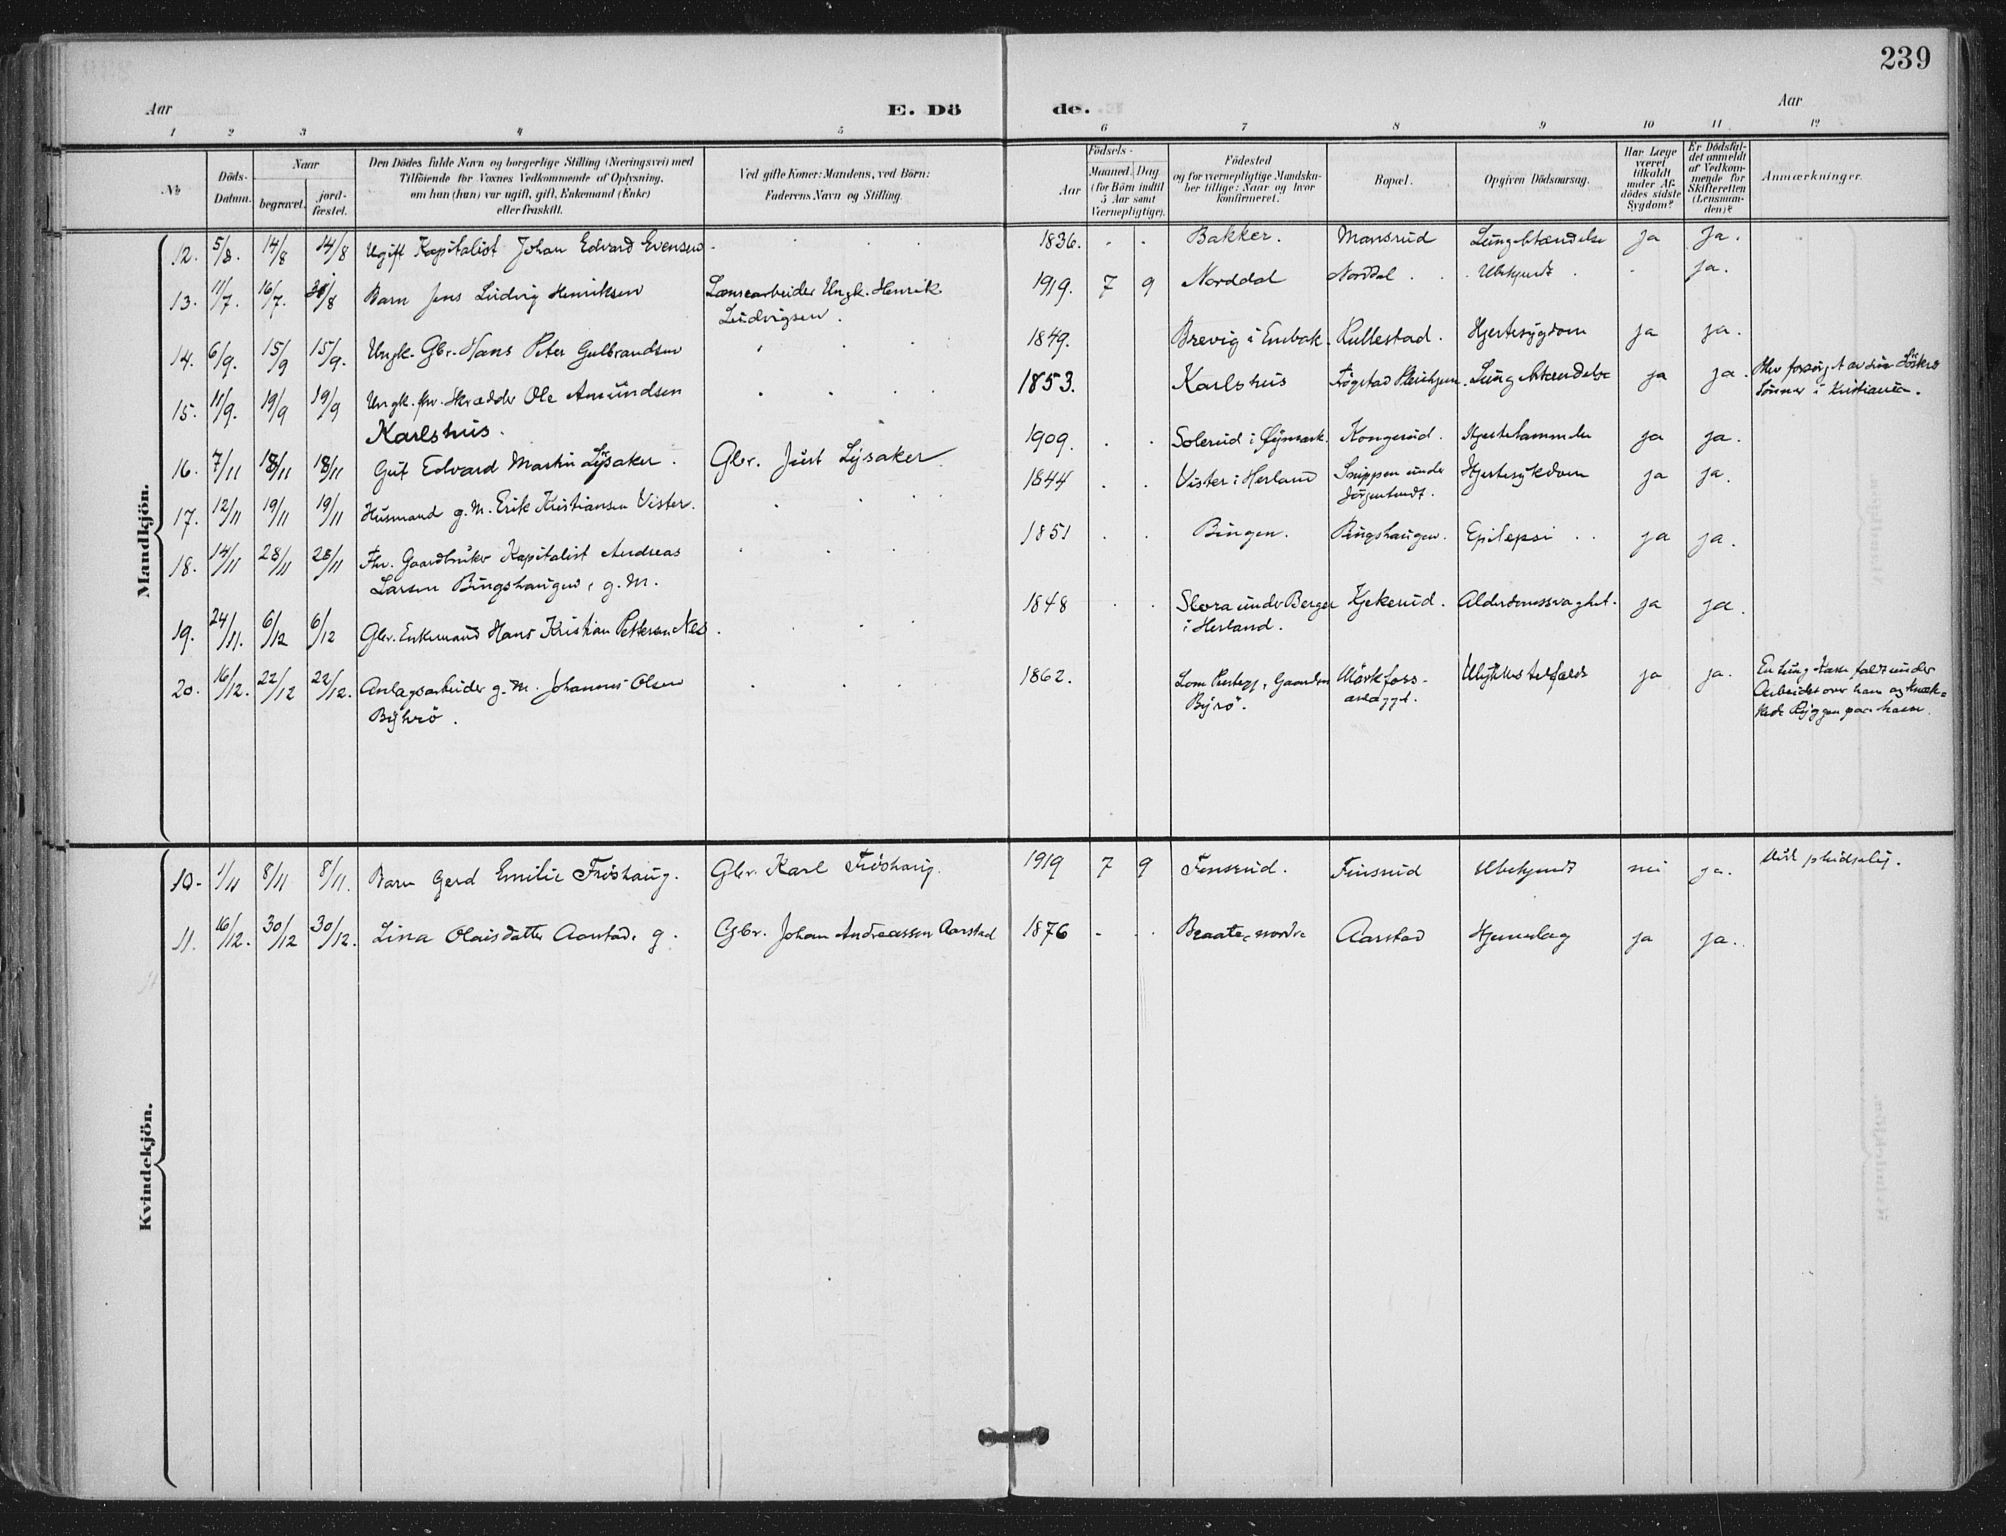 239
Aar
E. Dö
de.
Aar
1 2 3 4 5 6 7 8 9 10 11 12
No
Döds-
Datum.
Naar
begravet.
jord-
fæstet.
Den Dödes fulde Navn og borgerlige Stilling (Næringsvei) med
Tilföiende for Voxnes Vedkommende af Oplysning,
om han (hun) var ugift, gift, Enkemand (Enke)
eller fraskilt.
Ved gifte Koner: Mandens, ved Börn:
Faderens Navn og Stilling.
Födsels-
Aar
Maaned. Dag
(for Börn indtil
5 Aar samt
Værnepligtige).
Födested
og for værnepligtige Mandska-
ber tillige: Naar og hvor
konfirmeret.
Bopæl.
Opgiven Dödsaarsag.
Har Læge
været
tilkaldt
under Af-
dödes sidste
Sygdom?
Er Dödsfal-
det anmeldt
af Vedkom-
mende for
Skifteretten
(Lensman-
den)?
Anmærkninger.
Mandkjön.
12. 5/8. 14/8 14/8 Ugift Kapitalist Johan Edvard Evensen 1836. Bakker. Mansrud Lungebetændelse ja ja.
13. 11/7. 16/7. /8 Barn Jens Ludvig Henriksen Lænsearbeider Ungk. Henrik 1919. 7 9 Norddal Norddal Ubekjendt ja.
Ludvigsen.
14. 6/9. 15/9 15/9. Ungk. Gbr. Hans Peter Gulbrandsen 1849. Brevig i Enebak. Kullestad. Hjertesygdom ja ja.
15. 11/9. 19/9 19/9 Ungk. fhv. Skrædder Ole Amundsen 1853. Karlshus Trøgstad Pleiehjem. Lungebetændelse ja ja. Blev forsørget av sine
Karlshus. Sønner i Kristiania.
16. 7/11 18/11 18/11 Gut Edvard Martin Lysaker. Gbr. Just Lysaker 1909. Solerud i Øymark. Kongerud. Hjertelammelse ja ja.
17. 12/11 19/11 19/11 Husmand g. M. Erik Kristiansen Vister. 1844 Vister i Herland Snippen under Hjertesykdom ja ja.
18. 14/11 28/11 28/11 Fhv. Gaardbruker Kapitalist Andreas 1851 Bingen. Bingshaugen. Epilepsi ja ja.
Larsen Bingshaugen, g. M.
19. 24/11. 6/12 6/12 Gbr. Enkemand Hans Kristian Pettersen Nes. 1848 Slora under Berger Kjekerud. Alderdomssvaghet. ja ja.
i Herland.
20. 16/12. 22/12 22/12. Anlægsarbeider g. M. Johannes Olsen 1862. Lom Prestegj., Gaarden Mörkfoss- Ulykkestilfælde ja ja. En tung Kasse faldt under
Byrö. anlægget. Arbeidet over ham og knæk-
kede Ryggen paa ham.
Kvindekjön.
10. 1/11 8/11 8/11. Barn Gerd Emilie Frøshaug. Gbr. Karl Frøshaug. 1919 7 9 Finsrud. Finsrud Ubekjendt nei ja. Död pludselig.
11. 16/12. 30/12 30/12. Lina Olaisdatter Aarstad. g. Gbr. Johan Andreassen Aarstad 1876 Braate, nordre Aarstad Hjerneslag ja ja.